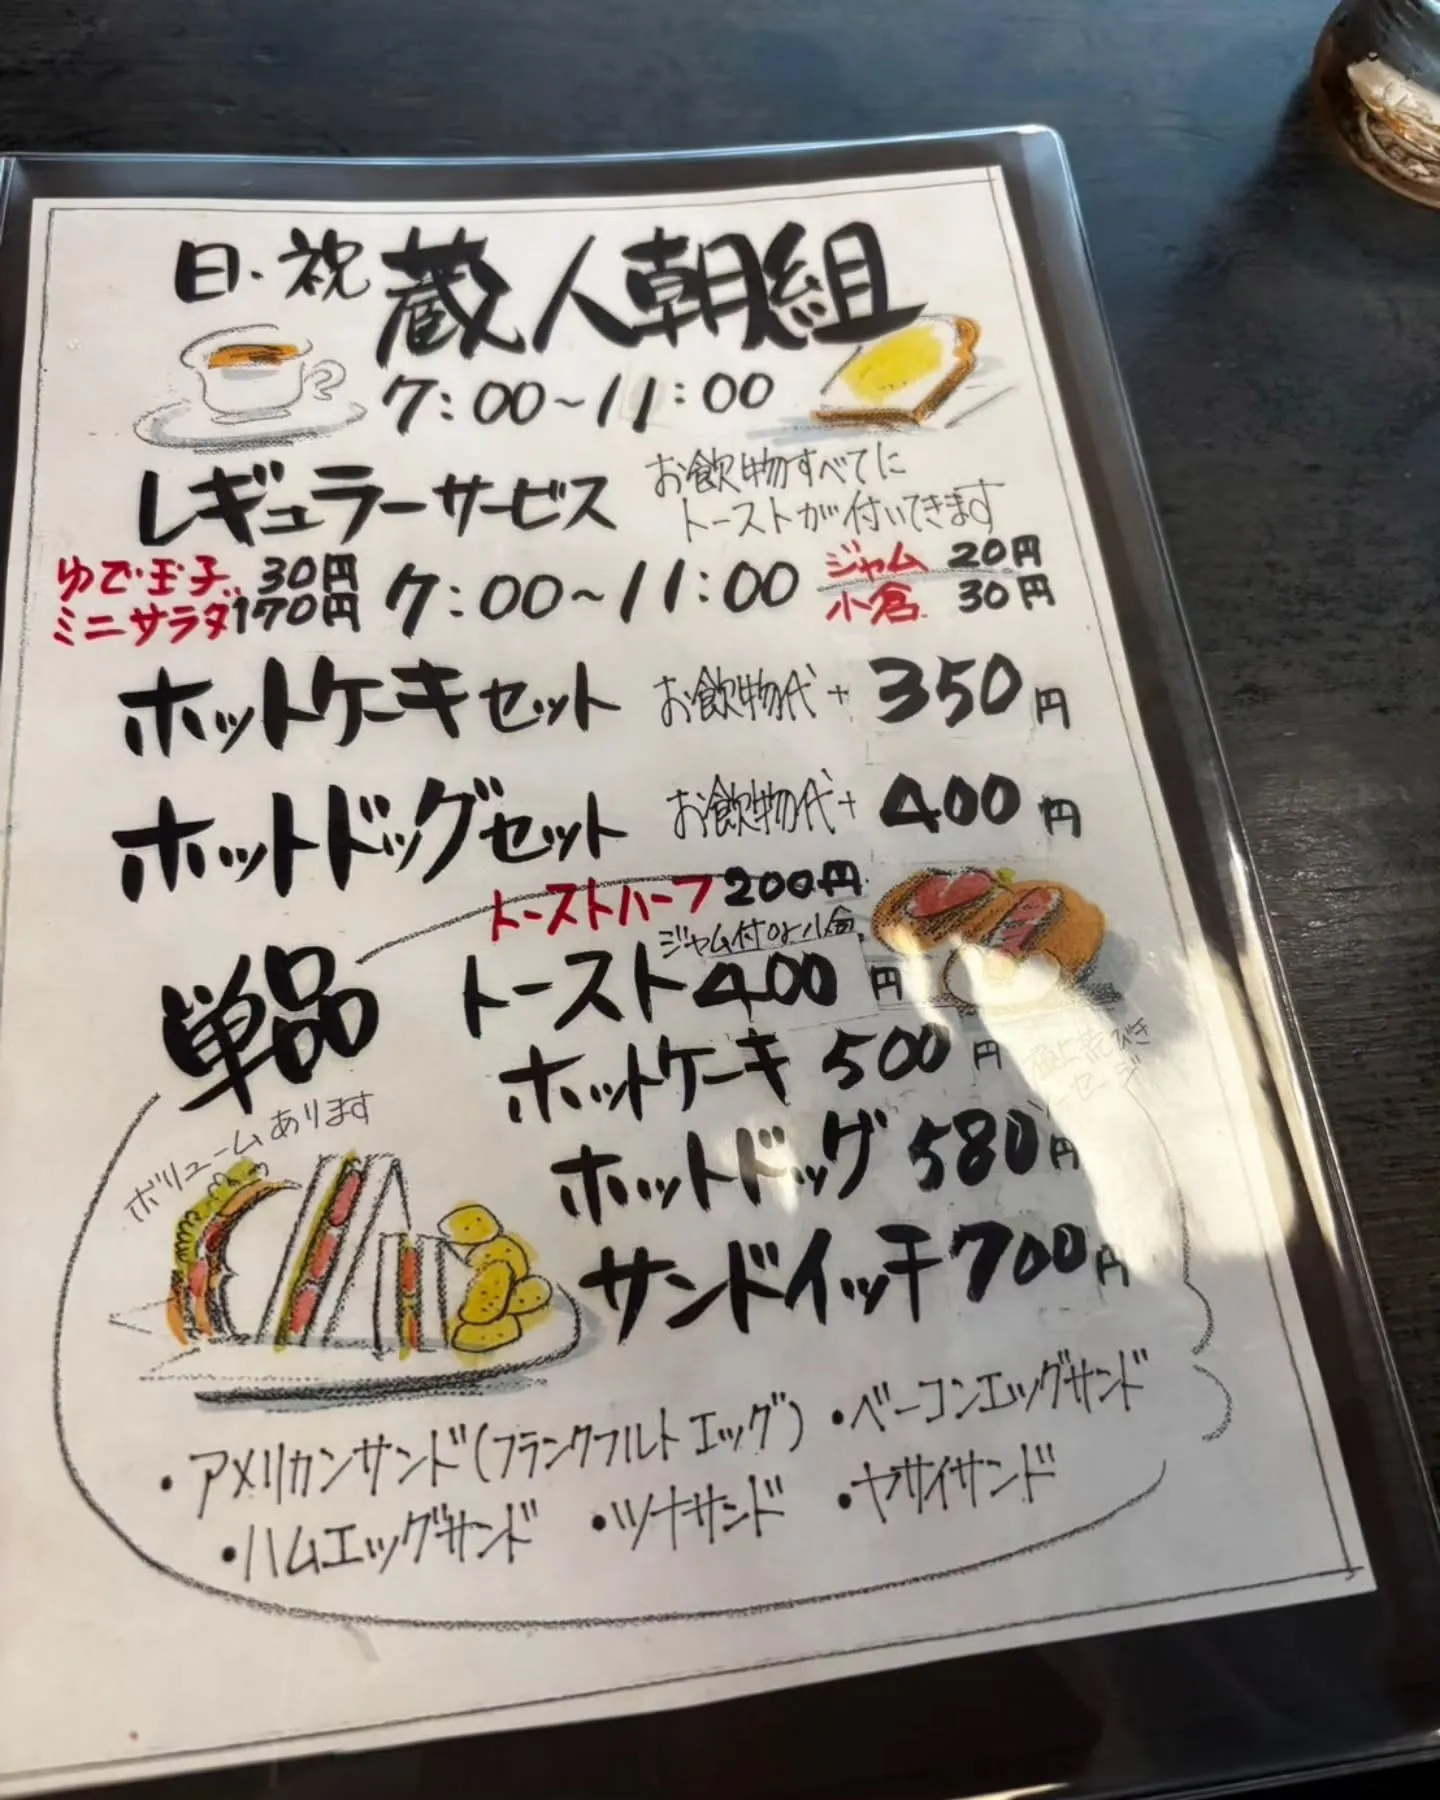 日・祝 蔵人朝組
7:00~11:00
レギュラーサービス
お飲物すべてに
トーストが付いてきます
ゆで玉子.. 30円
ミニサラダ170円
7:00~11:00
ジャム 20円
小倉. 30円
ホットケーキセット お飲物代+ 350円
ホットドッグセット お飲物代+ 400円
トーストハーフ 200円
ジャム付or小倉
単品
トースト 400円
ホットケーキ 500円
極上荒びき
ソーセージ
ホットドッグ 580円
ボリュームあります
サンドイッチ 700円
・アメリカンサンド(フランクフルトエッグ) ・ベーコンエッグサンド
・ハムエッグサンド ・ツナサンド ・ヤサイサンド